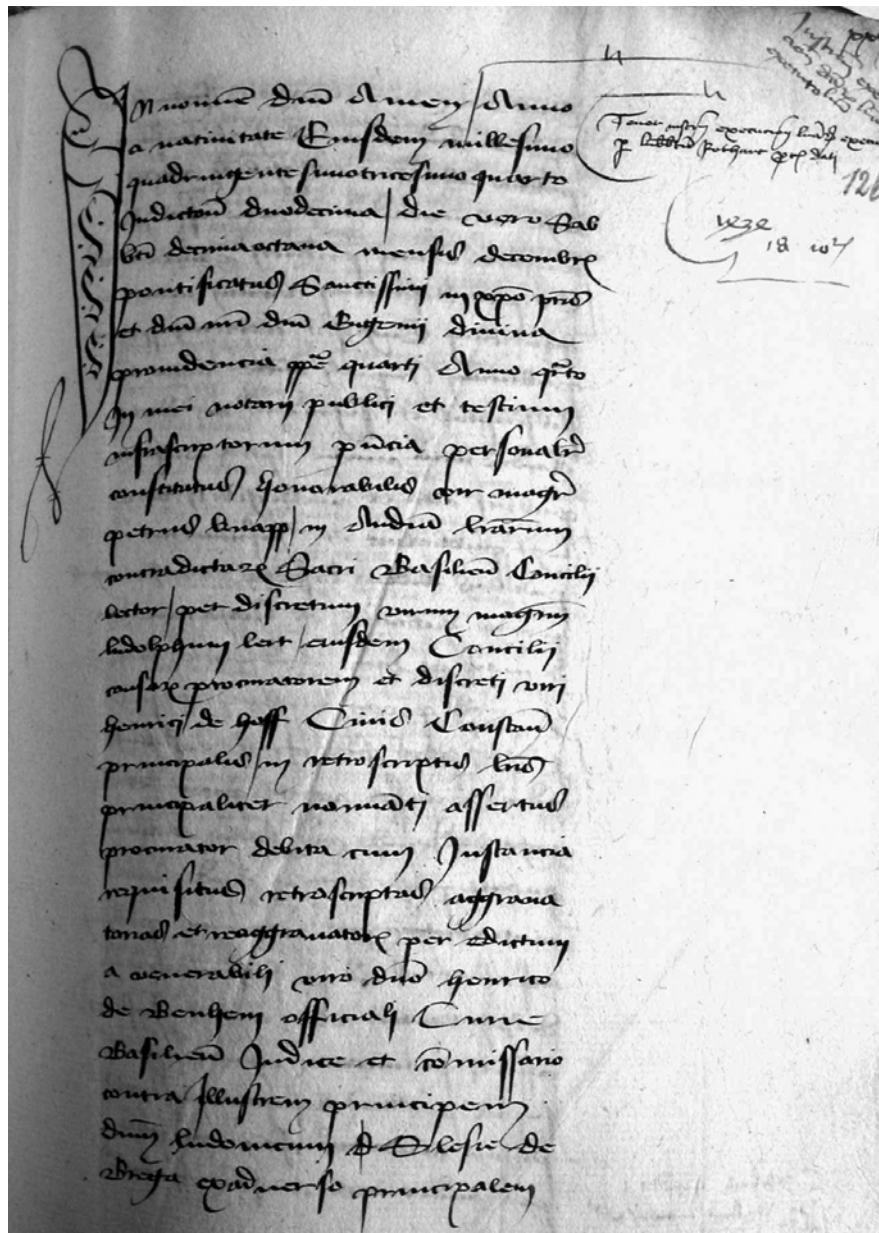 In nomie dni Amen Anno
a nativitate Eiusdem millesimo
quadringentesimotricesimo quarto
Indictoni duodecima die vero Sab
bti decimaoctava mensis decembr
pontificatus Sanctissimi in xpo pris
et dni nri dni Eugenij divina
providencia ppe quarti Anno qrto
In mei notarij publici et testium
infrascriptorum pncia personalr
constitutus honorabilis vir magr
petrus knapp in Audia lrarum
contradictar Sacri Basilien Concilij
lector per discretum virum magrm
ludolphum eiusdem Concilij
causar procuratorem et discreti viri
henrici de hoff Civis Constan
principalis in retroscriptis lris
principaliter nominati assertus
procurator debita cum Instancia
requisitus retroscriptas aggrava
torias et reaggravator per edictum
a venerabili viro dno henrico
de Benhem officiali Curie
Basilien Judice et comissario
contra Illustrem principem
dnm ludovicum Slesie de
Brega exadverso principalem
Tenor instri execucionis
18